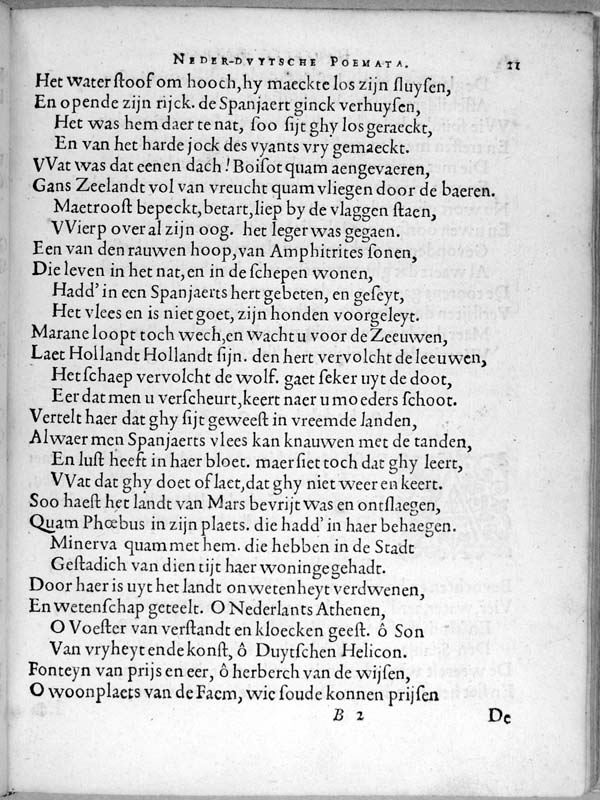 NEDER-DVYTSCHE POEMATA. 21
Het water stoof om hooch, hy maeckte los zijn sluysen,
En opende zijn rijck. de Spanjaert ginck verhuysen,
Het was hem daer te nat, soo sijt ghy los geraeckt,
En van het harde jock des vyants vry gemaeckt.
VVat was dat eenen dach! Boisot quam aengevaeren,
Gans Zeelandt vol van vreucht quam vliegen door de baeren.
Maetroost bepeckt, betart, liep by de vlaggen staen,
VVierp over al zijn oog. het leger was gegaen.
Een van den rauwen hoop, van Amphitrites sonen,
Die leven in het nat, en in de schepen wonen,
Hadd' in een Spanjaerts hert gebeten, en geseyt,
Het vlees en is niet goet, zijn honden voorgeleyt.
Marane loopt toch wech, en wacht u voor de Zeeuwen,
Laet Hollandt Hollandt sijn. den hert vervolcht de leeuwen,
Het schaep vervolcht de wolf. gaet seker uyt de doot,
Eer dat men u verscheurt, keert naer u moeders schoot.
Vertelt haer dat ghy sijt geweest in vreemde landen,
Alwaer men Spanjaerts vlees kan knauwen met de tanden,
En lust heeft in haer bloet. maer siet toch dat ghy leert,
VVat dat ghy doet of laet, dat ghy niet weer en keert.
Soo haest het landt van Mars bevrijt was en ontslaegen,
Quam Phœbus in zijn plaets. die hadd' in haer behaegen.
Minerva quam met hem. die hebben in de Stadt
Gestadich van dien tijt haer woninge gehadt.
Door haer is uyt het landt onwetenheyt verdwenen,
En wetenschap geteelt. O Nederlants Athenen,
O Voester van verstandt en kloecken geest. ô Son
Van vryheyt ende konst, ô Duytschen Helicon.
Fonteyn van prijs en eer, ô herberch van de wijsen,
O woonplaets van de Faem, wie soude konnen prijsen
B 2 De